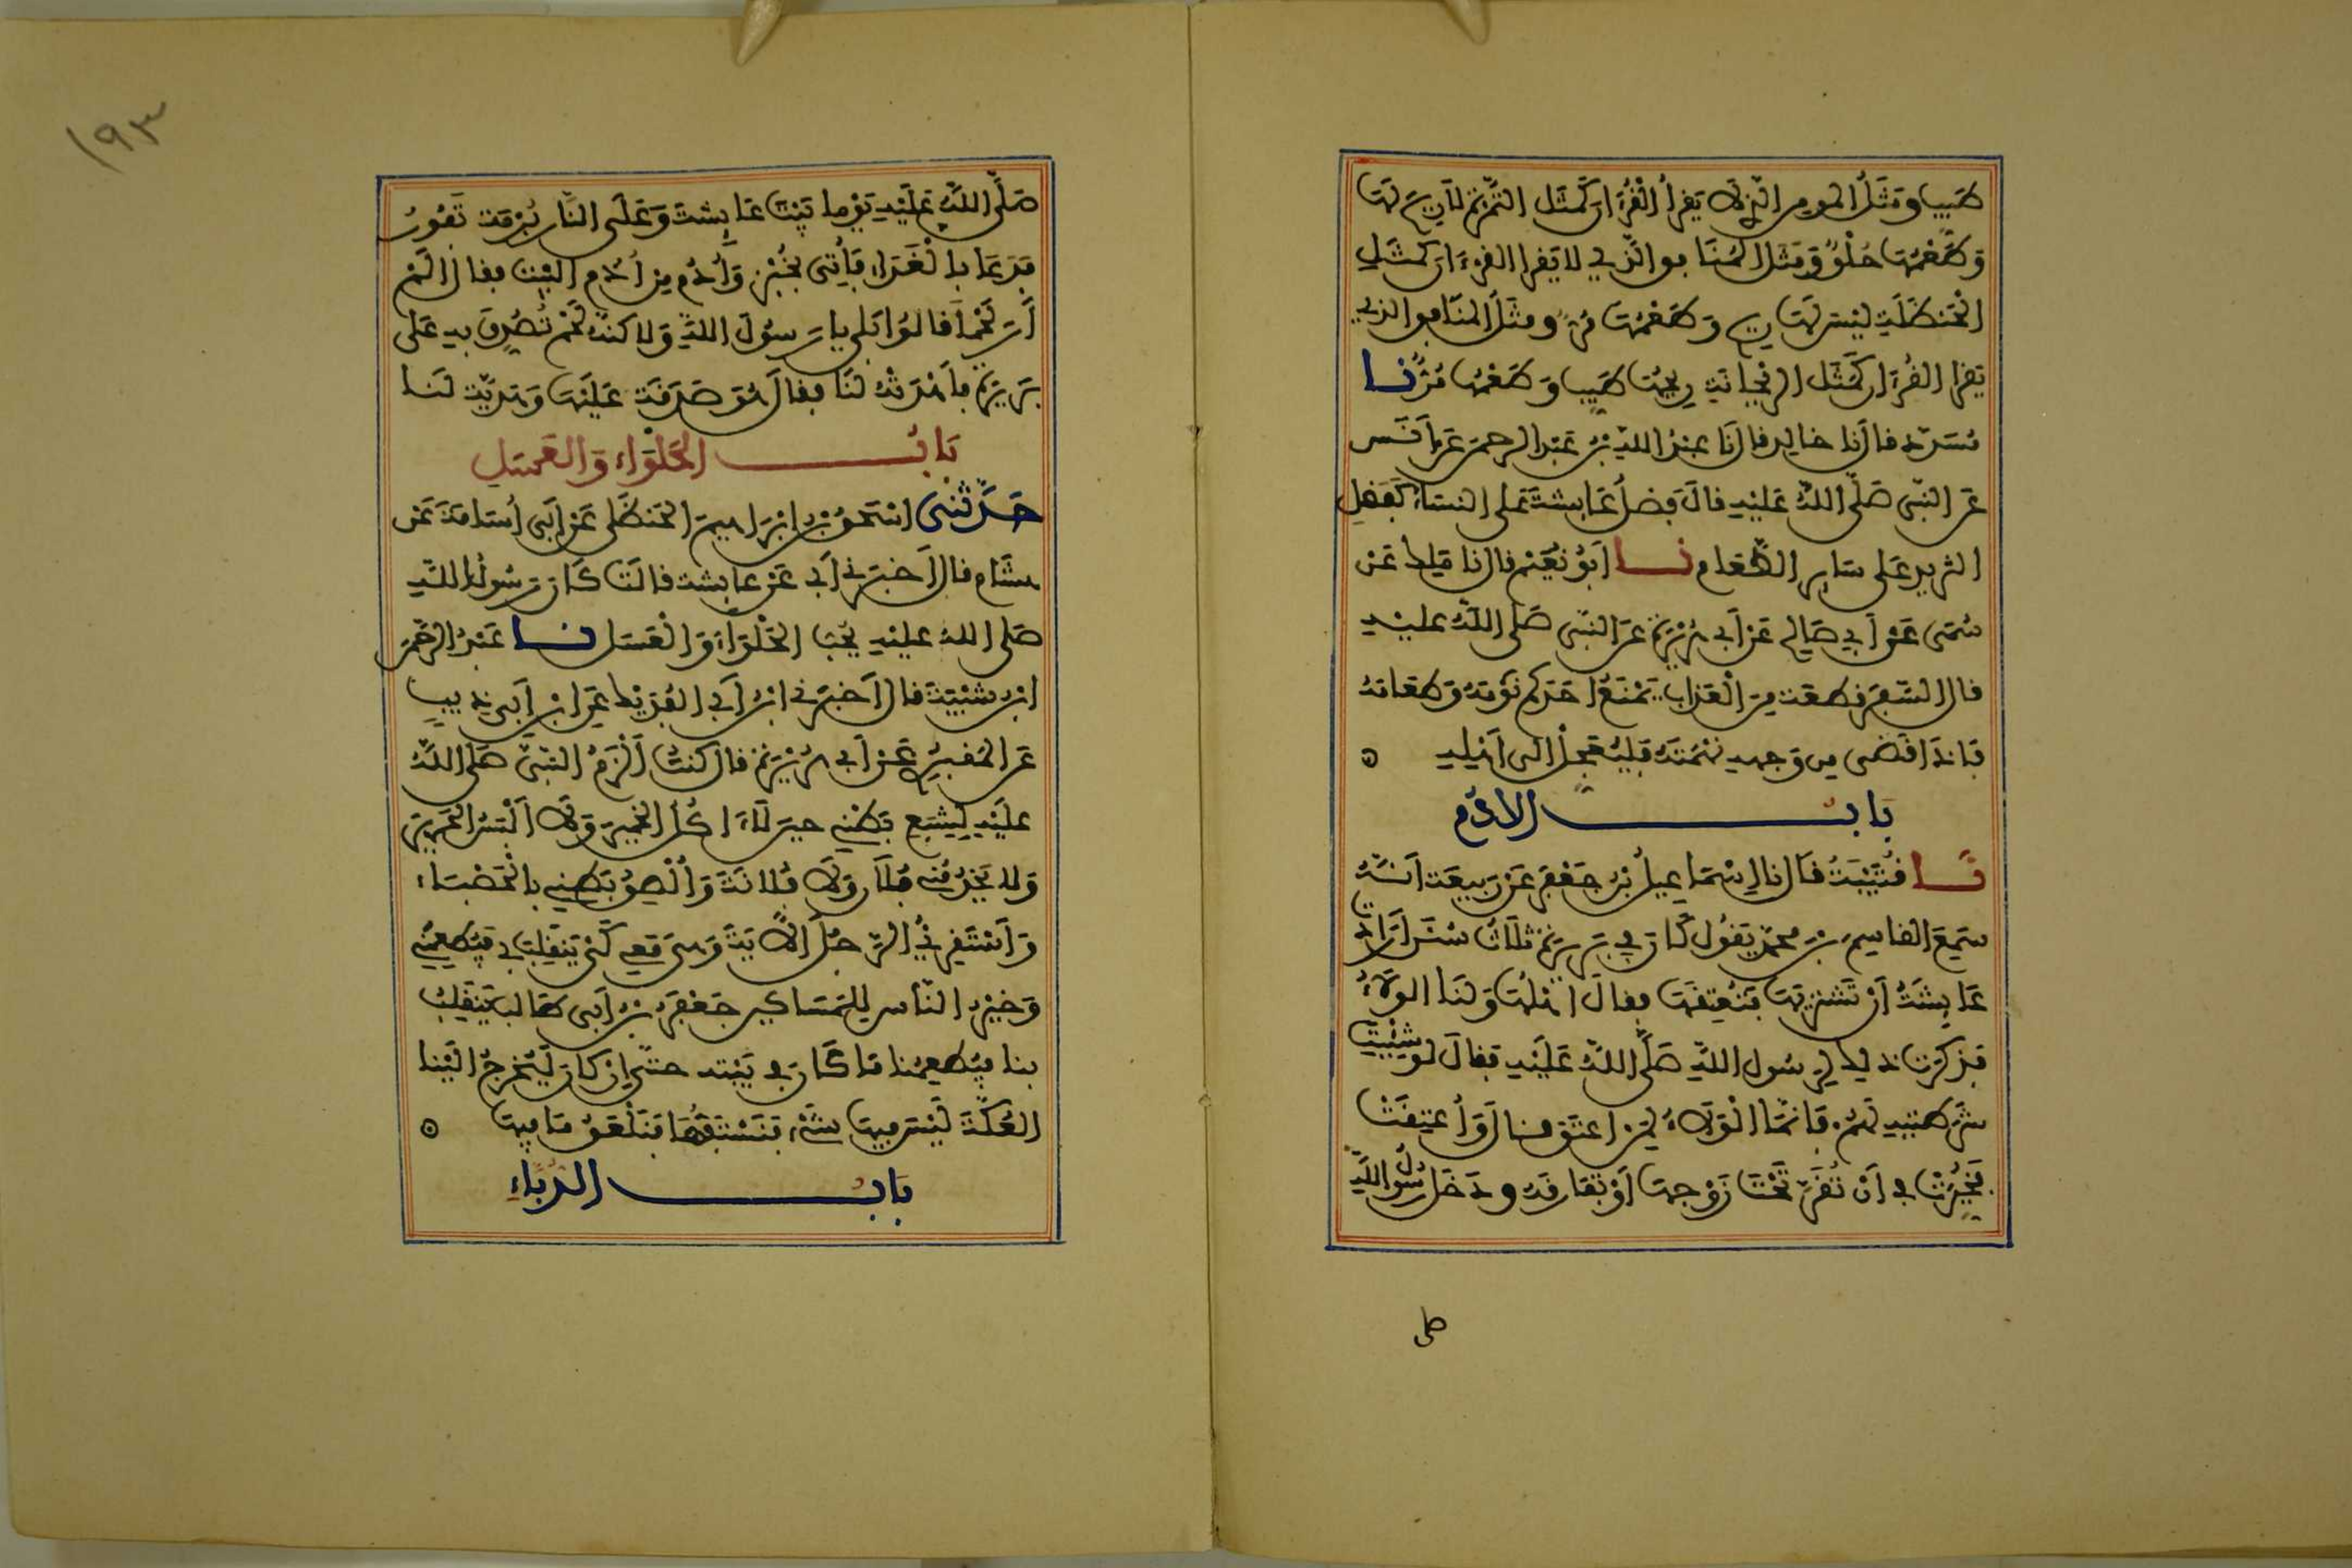 طيب ومثل المومن الذي لا يقرأ القرءان كمثل التمرة لا ريح لها
وطعمها حلو ومثل المنافق الذي لا يقرا القرءان كمثل
الحنظلة ليس لها ريح وطعمها مر ومثل المنافق الذي
يقرا القرءان كمثل الريحانة ريحها طيب وطعمها مر نا
مسدد قال نا خالد قال نا عبد الله بن عبد الرحمن عن أنس
عن النبي صلى الله عليه قال فضل عايشة على النساء كفضل
الثريد على ساير الطعام نا ابو نعيم قال نا مالك عن
سمي عن أبي صالح عن أبي هريرة عن النبي صلى الله عليه
قال السفر قطعة من العذاب يمنع احدكم نومه وطعامه
فاذا قضى من وجهه نهمته فليعجل الى اهليه
باب الادم
نا قتيبة قال نا إسماعيل بن جعفر عن ربيعة انه
سمع القاسم بن محمد يقول كان في بريرة ثلاث سنن ارادت
عايشة أن تشتريها فتعتقها فقال اهلها ولنا الولاء
فذكرت ذلك لرسول الله صلى الله عليه فقال لو شيت
شرطتيه لهم فانما الولاء لمن اعتق قال وأعتقت
فخيرت في أن تقر تحت زوجها أو تفارقه ودخل رسول الله
صلى
١٩٣
صلى الله عليه يوما بيت عايشة وعلى النار برمة تفور
فدعا بالغداء فأتي بخبز وأدم من أدم البيت فقال الم
أر لحما قالوا بلى يا رسول الله ولاكنه لحم تصدق به على
بريرة فأهدته لنا فقال هو صدقة عليها وهدية لنا
باب الحلواء والعسل
حدثني اسحق بن إبراهيم الحنظلي عن أبي أسامة عن
هشام قال أخبرني أبي عن عايشة قالت كان رسول الله
صلى الله عليه يحب الحلواء والعسل نا عبد الرحمن
ابن شيبة قال أخبرني ابن أبي الفديك عن ابن أبي ذيب
عن المقبري عن أبي هريرة قال كنت ألزم النبي صلى الله
عليه لشبع بطني حين لا ءاكل الخمير ولا ألبس الحرير
ولا يخدمني فلان ولا فلانة وألصق بطني بالحصباء
وأستقري الرجل الاية وهي معي كي ينقلب بي فيطعمني
وخير الناس للمساكين جعفر بن أبي طالب ينقلب
بنا فيطعمنا ما كان في بيته حتى إن كان ليخرج الينا
العكة ليس فيها شيء فنشتقها فنلعق ما فيها
باب الدباء